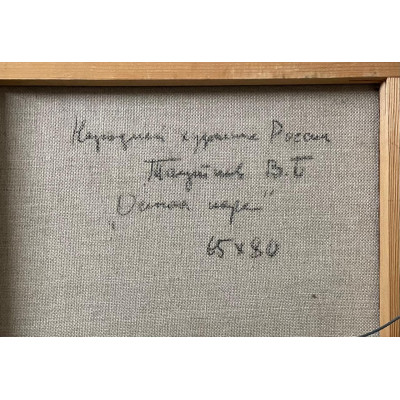 Народный художник России
В.Б
"Осенняя пора"
65х80